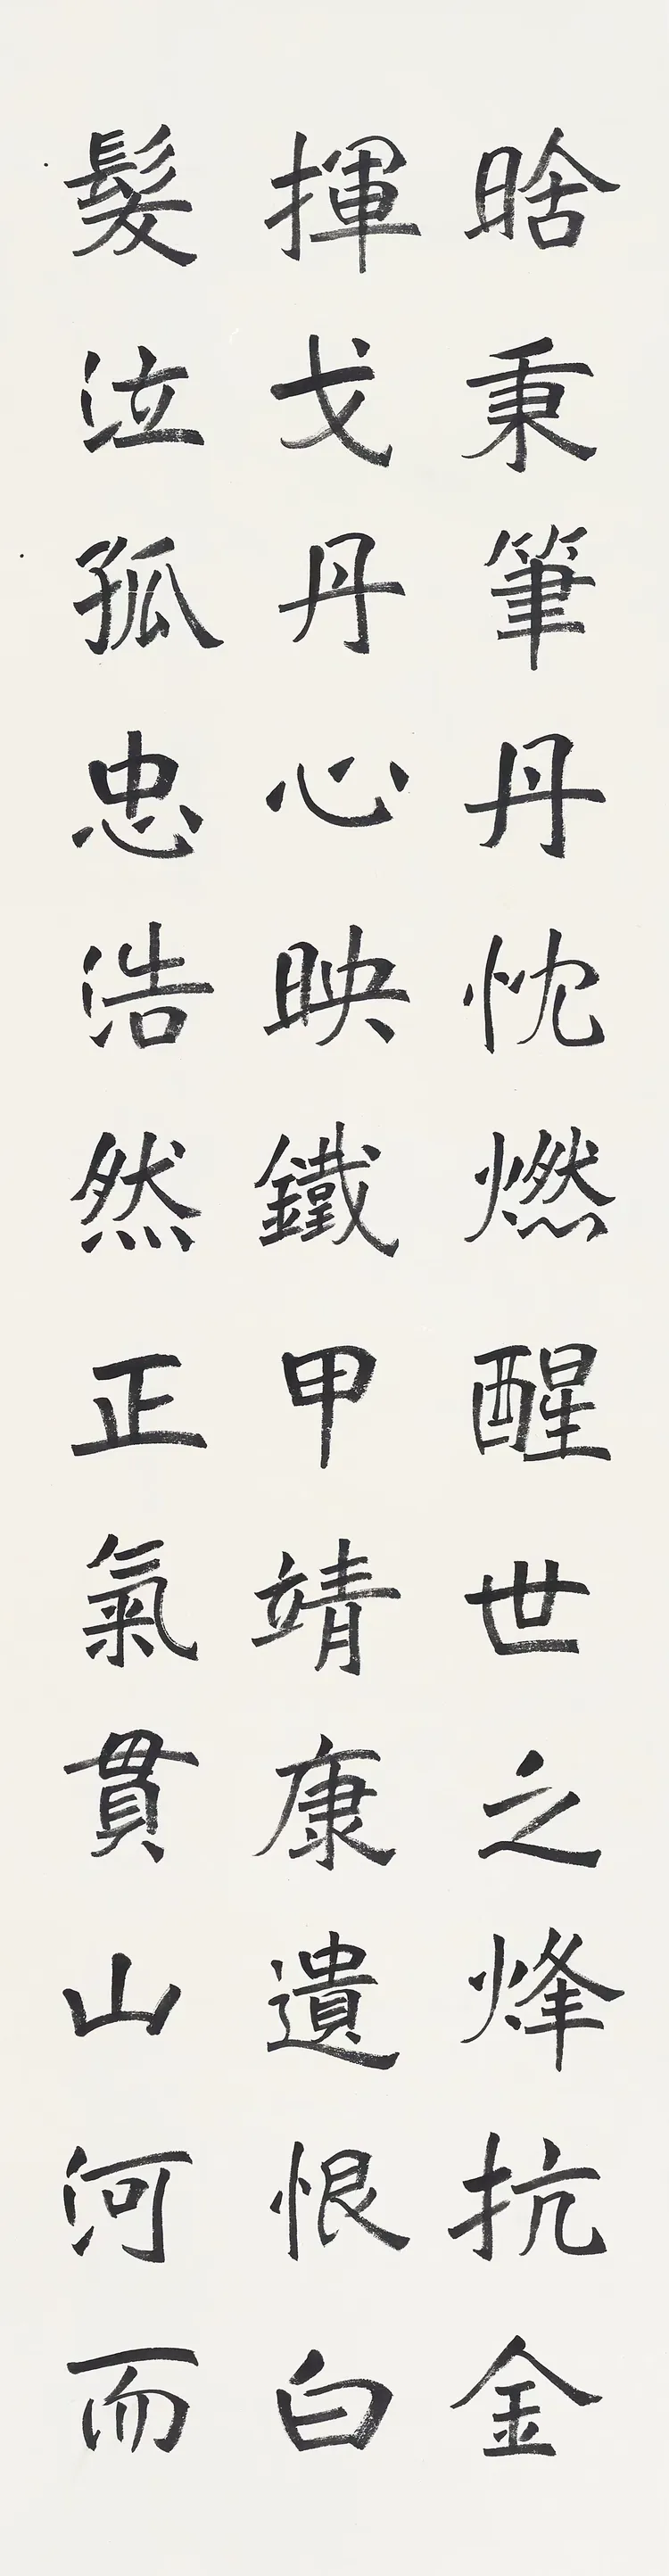 晗秉筆丹忱燃醒世之烽抗金
揮戈丹心映鐵甲靖康遺恨白
髮泣孤忠浩然正氣貫山河而